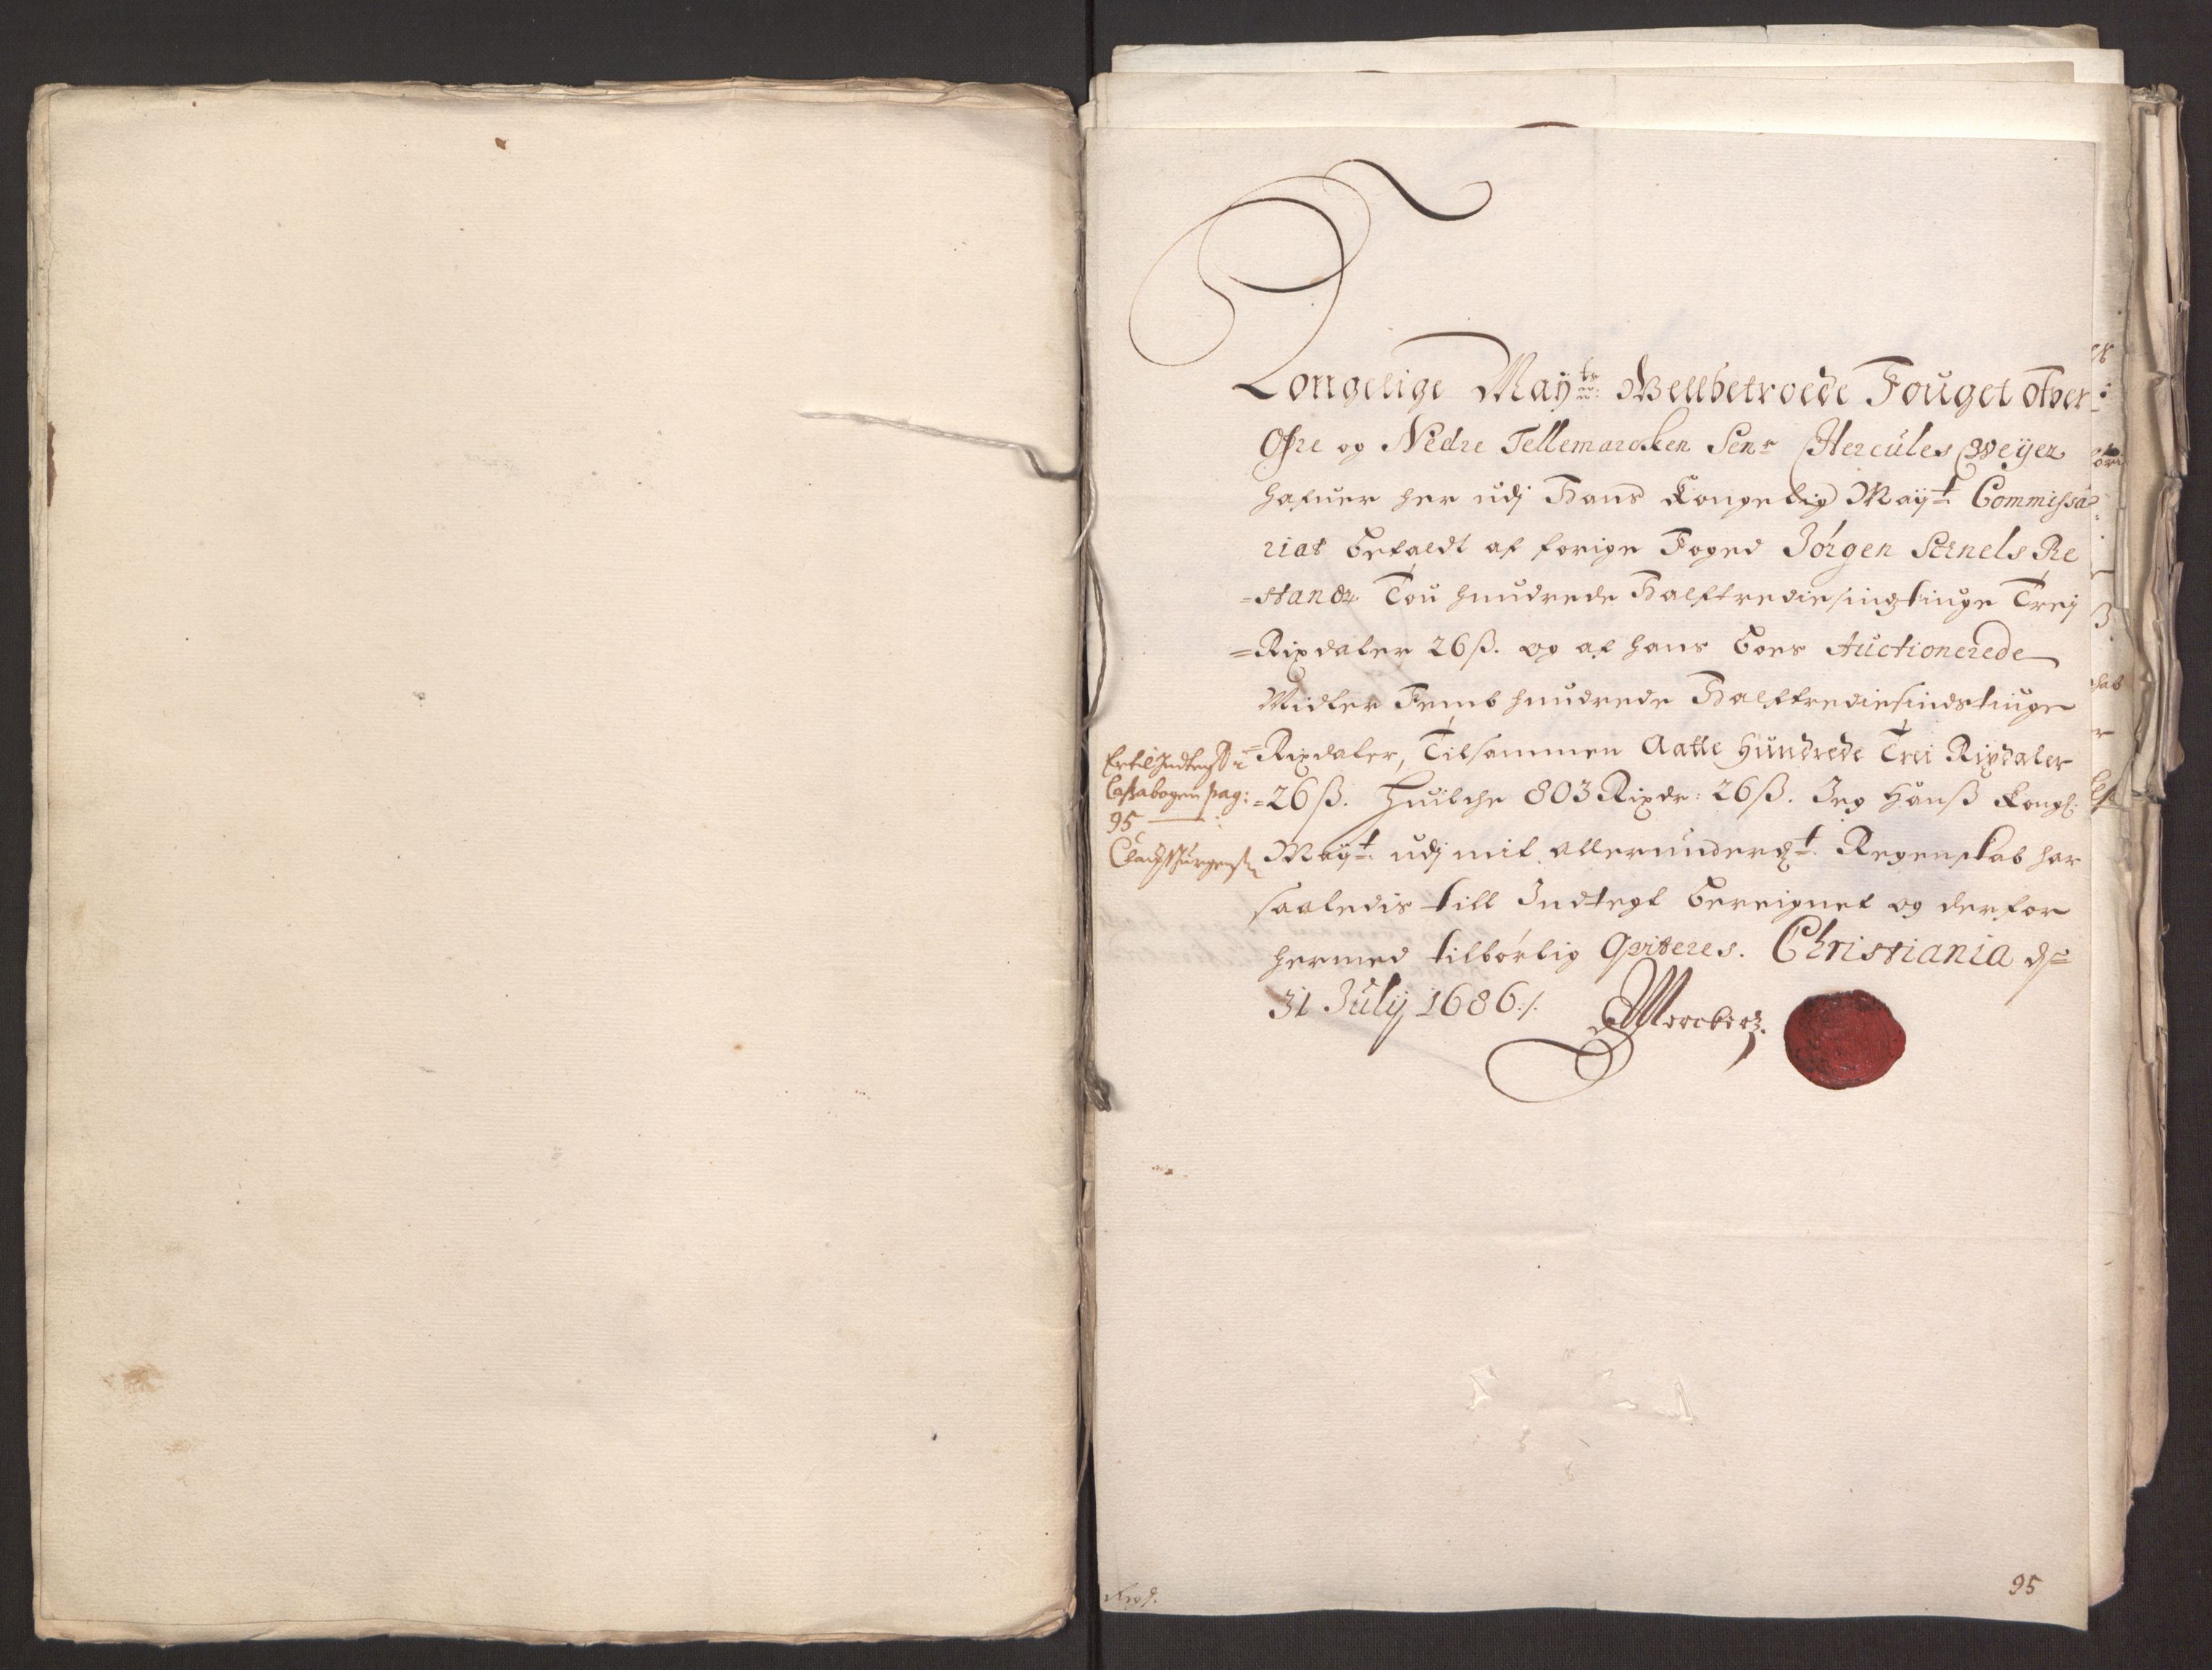 Kongelige May:tz Wellbetroede Fouget ofver
Øfre og Nedre Tellemarcken Sen:r Hercules Weyer
hafuer her udj Hans Kongelig May:t Commissa
riat betaldt af forige Foged Jörgen Pernels Re
=standz Tou hundrede Halftrediesingtiuge Trej
=Rixdaler 26 ß. og af hans boes Auctionerede
Midler Femb hundrede Halftrediesindstiuge
=Rixdaler, Tilsammen Aatte Hundrede Trei Rixdaler
=26 ß. Huilche 803 Rixdr: 26 ß. Jeg Hanß Kongl:
May:t udj mit allerunderd:t Regenskab har
saaledis till Indtegt bereignet og derfor
hermed tilbörlig Qviteres. Christiania d:
31 July 1686 ./.
Er til Indtegt i
Cassabogen pag:
95
95